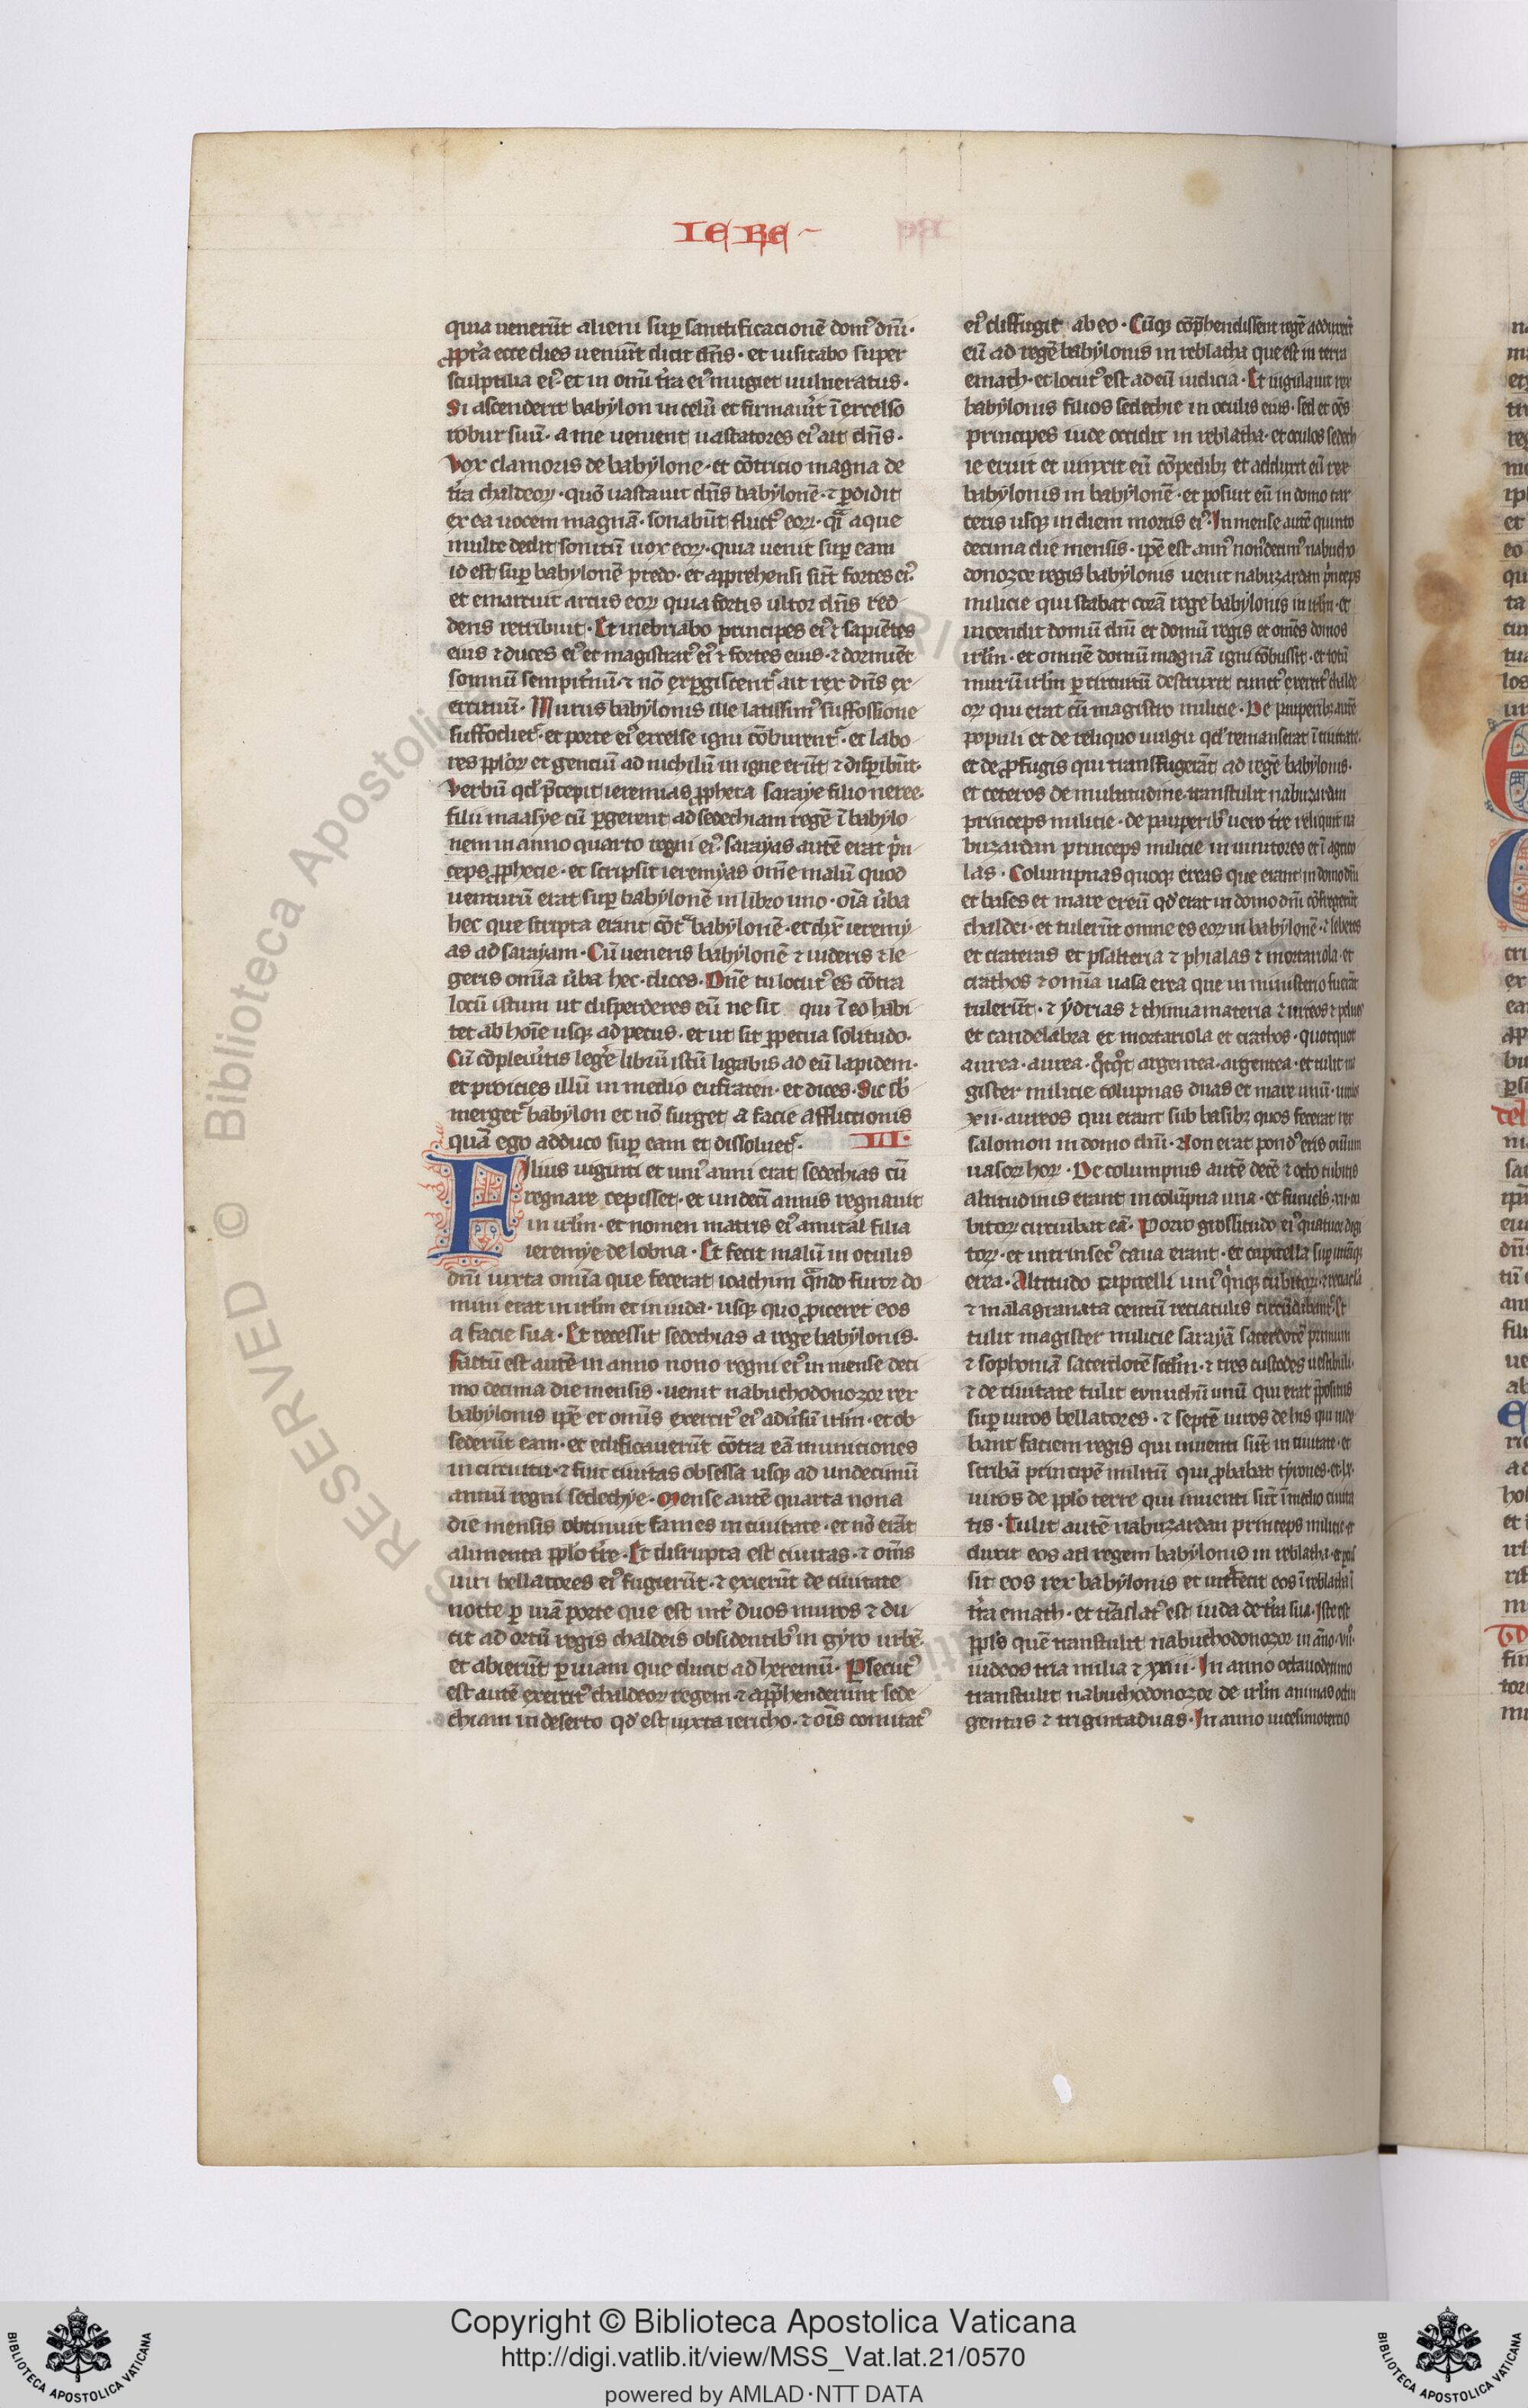 IERE
quia uenerūt alieni suꝑ sanctificacionē domꝰ dn̄i·
ꝓpt̾a ecce dies ueniūt dicit dn̄s· et uisitabo super
sculptilia eiꝰ· et in om̄i t̾ra eiꝰ mugiet uulneratus·
Si ascenderit babylon in celū et firmauit̾ ī excelso
robur suū· a me uenient uastatores eiꝰ ait dn̄s·
Vox clamoris de babylone· et cōtricio magna de
t̾ra chaldeoꝝ· quō uastauit dn̄s babylonē· ⁊ ꝑdidit
ex ea uocem magnā· sonabūt fluctꝰ eoꝝ· qͣi aque
multe dedit sonitū uox eoꝝ· quia uenit suꝑ eam
id est suꝑ babylonē predo· et apprehensi sūt fortes eiꝰ·
et emarcuit arcus eoꝝ quia fortis ultor dn̄s red
dens retribuit· Et inebriabo principes eiꝰ ⁊ sapiētes
eius ⁊ duces eiꝰ et magistratꝰ eiꝰ ⁊ fortes eius· ⁊ dormiēt
somnū sempit̾nū· ⁊ nō exꝑgiscent᷑ ait rex dn̄s ex
ercituū· Murus babylonis ille latissimꝰ suffossione
suffodiet᷑· et porte eiꝰ excelse igni cōburent᷑· et labo
res ppl̾oꝝ et gentiū ad nichilū in igne erūt ⁊ disꝑibūt·
Verbū qd̾ p̄cepit ieremias ꝓpheta saraye filio neree·
filii maasye cū ꝑgeret ad sedechiam regē ī babylo
nem in anno quarto regni eiꝰ· sarayas autē erat pͥn
ceps ꝓphecie· et scripsit ieremyas om̄e malū quod
uenturū erat suꝑ babylonē in libro uno· oīa u̾ba
hec que scripta erant cōt̾ babylonē· et dix̄ ieremy
as ad sarayam· Cū ueneris babylonē ⁊ uideris ⁊ le
geris om̄ia u̾ba hec· dices· Dn̄e tu locutꝰ es cōtra
locū istum ut disperderes eū ne sit qui ī eo habi
tet ab hoīe usqꝫ ad pecus· et ut sit ꝑpetua solitudo·
Cū cōpleu̾is leg̾e librū istū ligabis ad eū lapidem·
et proicies illū in medio eufraten· et dices· Sic sb̾
merget᷑ babylon et nō surget a facie afflictionis
quā ego adduco suꝑ eam et dissoluet᷑· LII·
Filius uiginti et uniꝰ anni erat sedechias cū
regnare cepisset· et undecī annis regnauit
in irl̄m· et nomen matris eiꝰ amital filia
ieremye de lobna· Et fecit malū in oculis
dn̄i iuxta om̄ia que fecerat ioachim qͣndo furor do
mini erat in irl̄m et in iuda· usqꝫ quo ꝓiceret eos
a facie sua· Et recessit sedechias a rege babylonis·
Factū est autē in anno nono regni eiꝰ in mense deci
mo decima die mensis· uenit nabuchodonozor rex
babylonis ip̄e et om̄is exercitꝰ eiꝰ adu̾sū irl̄m· et ob
sederūt eam· et edificauerūt cōtra eā municiones
in circuitu· ⁊ fuit ciuitas obsessa usqꝫ ad undecimū
annū regni sedechye· Mense autē quarta nona
die mensis obtinuit fames in ciuitate· et nō erāt
alimenta ppl̾o t̾re· Et disrupta est ciuitas· ⁊ om̄s
uiri bellatores eiꝰ fugierūt· ⁊ exierūt de ciuitate
nocte ꝑ uiā porte que est int̾ duos muros ⁊ du
cit ad ortū regis chaldeis obsidentibꝰ in gyro urbē·
et abierūt ꝑ uiam que ducit ad heremū· Ꝑsecutꝰ
est autē exercitꝰ chaldeoꝝ regem· ⁊ app̄henderunt sede
chiam in deserto qd̾ est iuxta iericho· ⁊ oīs comitatꝰ
eiꝰ diffugit ab eo· Cūqꝫ cōp̄hendissent regē adduxer̄t
eū ad regē babylonis in reblatha que est in terra
emath· et locutꝰ est ad eū iudicia· Et iugulauit rex
babylonis filios sedechie in oculis eius· sed et oēs
principes iude occidit in reblatha· et oculos sedech
ie eruit et uinxit eū cōpedibꝫ et adduxit eū rex
babylonis in babylonē· et posuit eū in domo car
ceris usqꝫ in diem mortis eiꝰ· In mense autē quinto
decima die mensis· ip̄e est annꝰ nonꝰdecimꝰ nabucho
donozor regis babylonis uenit nabuzardan pͥnceps
milicie qui stabat corā rege babylonis in irl̄m· et
incendit domū dn̄i et domū regis et om̄es domos
irl̄m· et omnē domū magnā igni cōbussit· et totū
murū irl̄m ꝑ circuitū destruxit cunctꝰ exercitꝰ chalde
oꝝ qui erat cū magistro milicie· De pauperibꝫ autē
populi et de reliquo uulgu qd̾ remanserat ī ciuitate·
et de ꝓfugis qui transfugerāt ad regē babylonis·
et ceteros de multitudine· transtulit nabuzardan
princeps milicie· de pauperibꝰ uero t̾re reliquit na
buzardan princeps milicie in uinitores et ī agrico
las· Columpnas quoqꝫ ereas que erant in domo dn̄i
et bases et mare ereū qd̾ erat in domo dn̄i cōfregerūt
chaldei· et tulerūt omne es eoꝝ in babylonē· ⁊ lebetes
et crateras et psalteria ⁊ phialas ⁊ mortariola· et
ciathos ⁊ om̄ia uasa erea que in ministerio fuerāt
tulerūt· ⁊ ydrias ⁊ thimiamateria ⁊ urceos ⁊ pelues
et candelabra et mortariola et ciathos· quotquot
aurea· aurea· qͦtqͦt argentea· argentea· et tulit ma
gister milicie colupnas duas et mare unū· uitulos
xii· aureos qui erant sub basibꝫ quos fecerat rex
salomon in domo dn̄i· Non erat pondꝰ eris om̄ium
uasoꝝ hoꝝ· De columpnis autē decē ⁊ octo cubitis
altitudinis erant in colūpna una· et funiclꝰ xii· cu
bitoꝝ circuibat eā· Porro grossitudo eiꝰ quatuor digi
toꝝ· et intrinsecꝰ caua erant· et capitella suꝑ utrāqꝫ
erea· Altitudo capitelli uniꝰ qͥnqꝫ cubitoꝝ· ⁊ reciacla
⁊ malagranata centū reciaculis circūdibant᷑· Et
tulit magister milicie sarayā sacerdotē primum
⁊ sophoniā sacerdotē sc̄dm̄· ⁊ tres custodes uestibuli·
⁊ de ciuitate tulit eunuchū unū qui erat p̄positus
suꝑ uiros bellatores· ⁊ septē uiros de his qui uide
bant faciem regis qui inuenti sūt in ciuitate· et
scribā principē militū qui ꝓbabat tyrones· et lx·
uiros de ppl̾o terre qui inuenti sūt ī medio ciuita
tis· Tulit autē nabuzardan princeps milicie· et
duxit eos ad regem babylonis in reblatha· et ꝑcus
sit eos rex babylonis et int̾fecit eos ī reblatha ī
t̾ra emath· et trāslatꝰ est iuda de t̾ra sua· Iste est
ppl̾s quē transtulit nabuchodonozor in āno· viiͦ·
iudeos tria milia ⁊ xxiii· In anno octauodecimo
transtulit nabuchodonozor de irl̄m animas octin
gentas ⁊ trigintaduas· In anno uicesimotercio
RESERVED © Biblioteca Apostolica
BIBLIOTECA APOSTOLICA VATICANA
Copyright © Biblioteca Apostolica Vaticana
http://digi.vatlib.it/view/MSS_Vat.lat.21/0570
powered by AMLAD·NTT DATA
BIBLIOTECA APOSTOLICA VATICANA